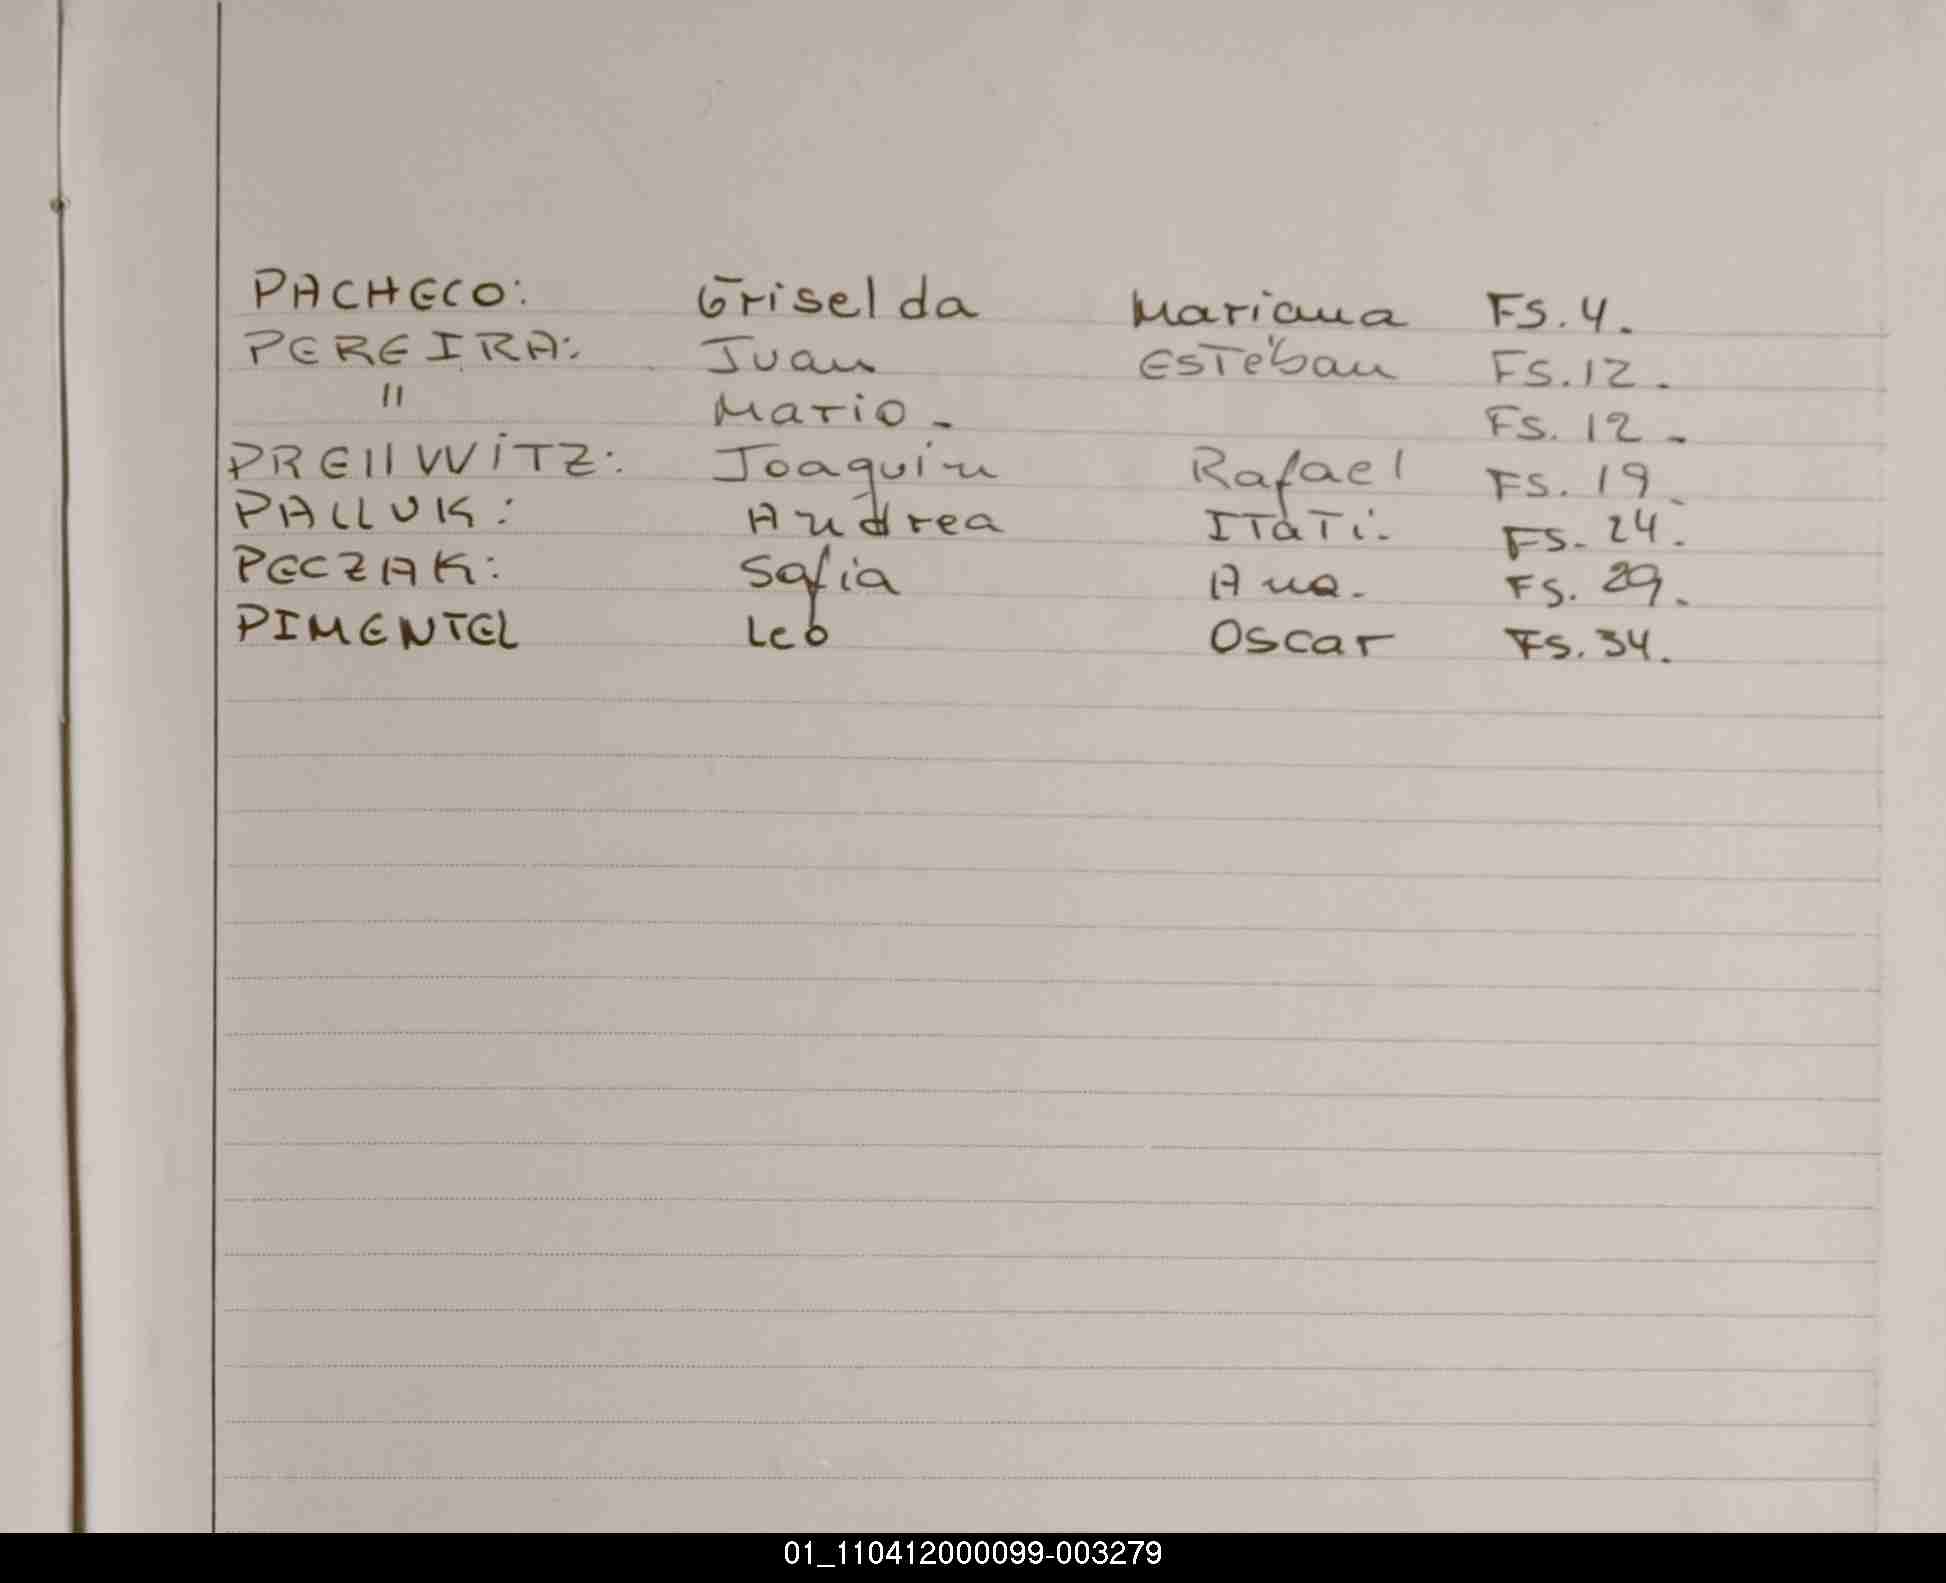 PACHECO: Griselda Mariana Fs. 4.
PEREIRA: Juan Esteban Fs. 12.
" Mario - Fs. 12 -
PREllWiTZ: Joaquin Rafael Fs. 19.
PALLUK: Andrea ITaTi. Fs. 24.
PECZAK: Sofia Ana. Fs. 29.
PIMENTEL Leo Oscar Fs. 34.
01_110412000099-003279